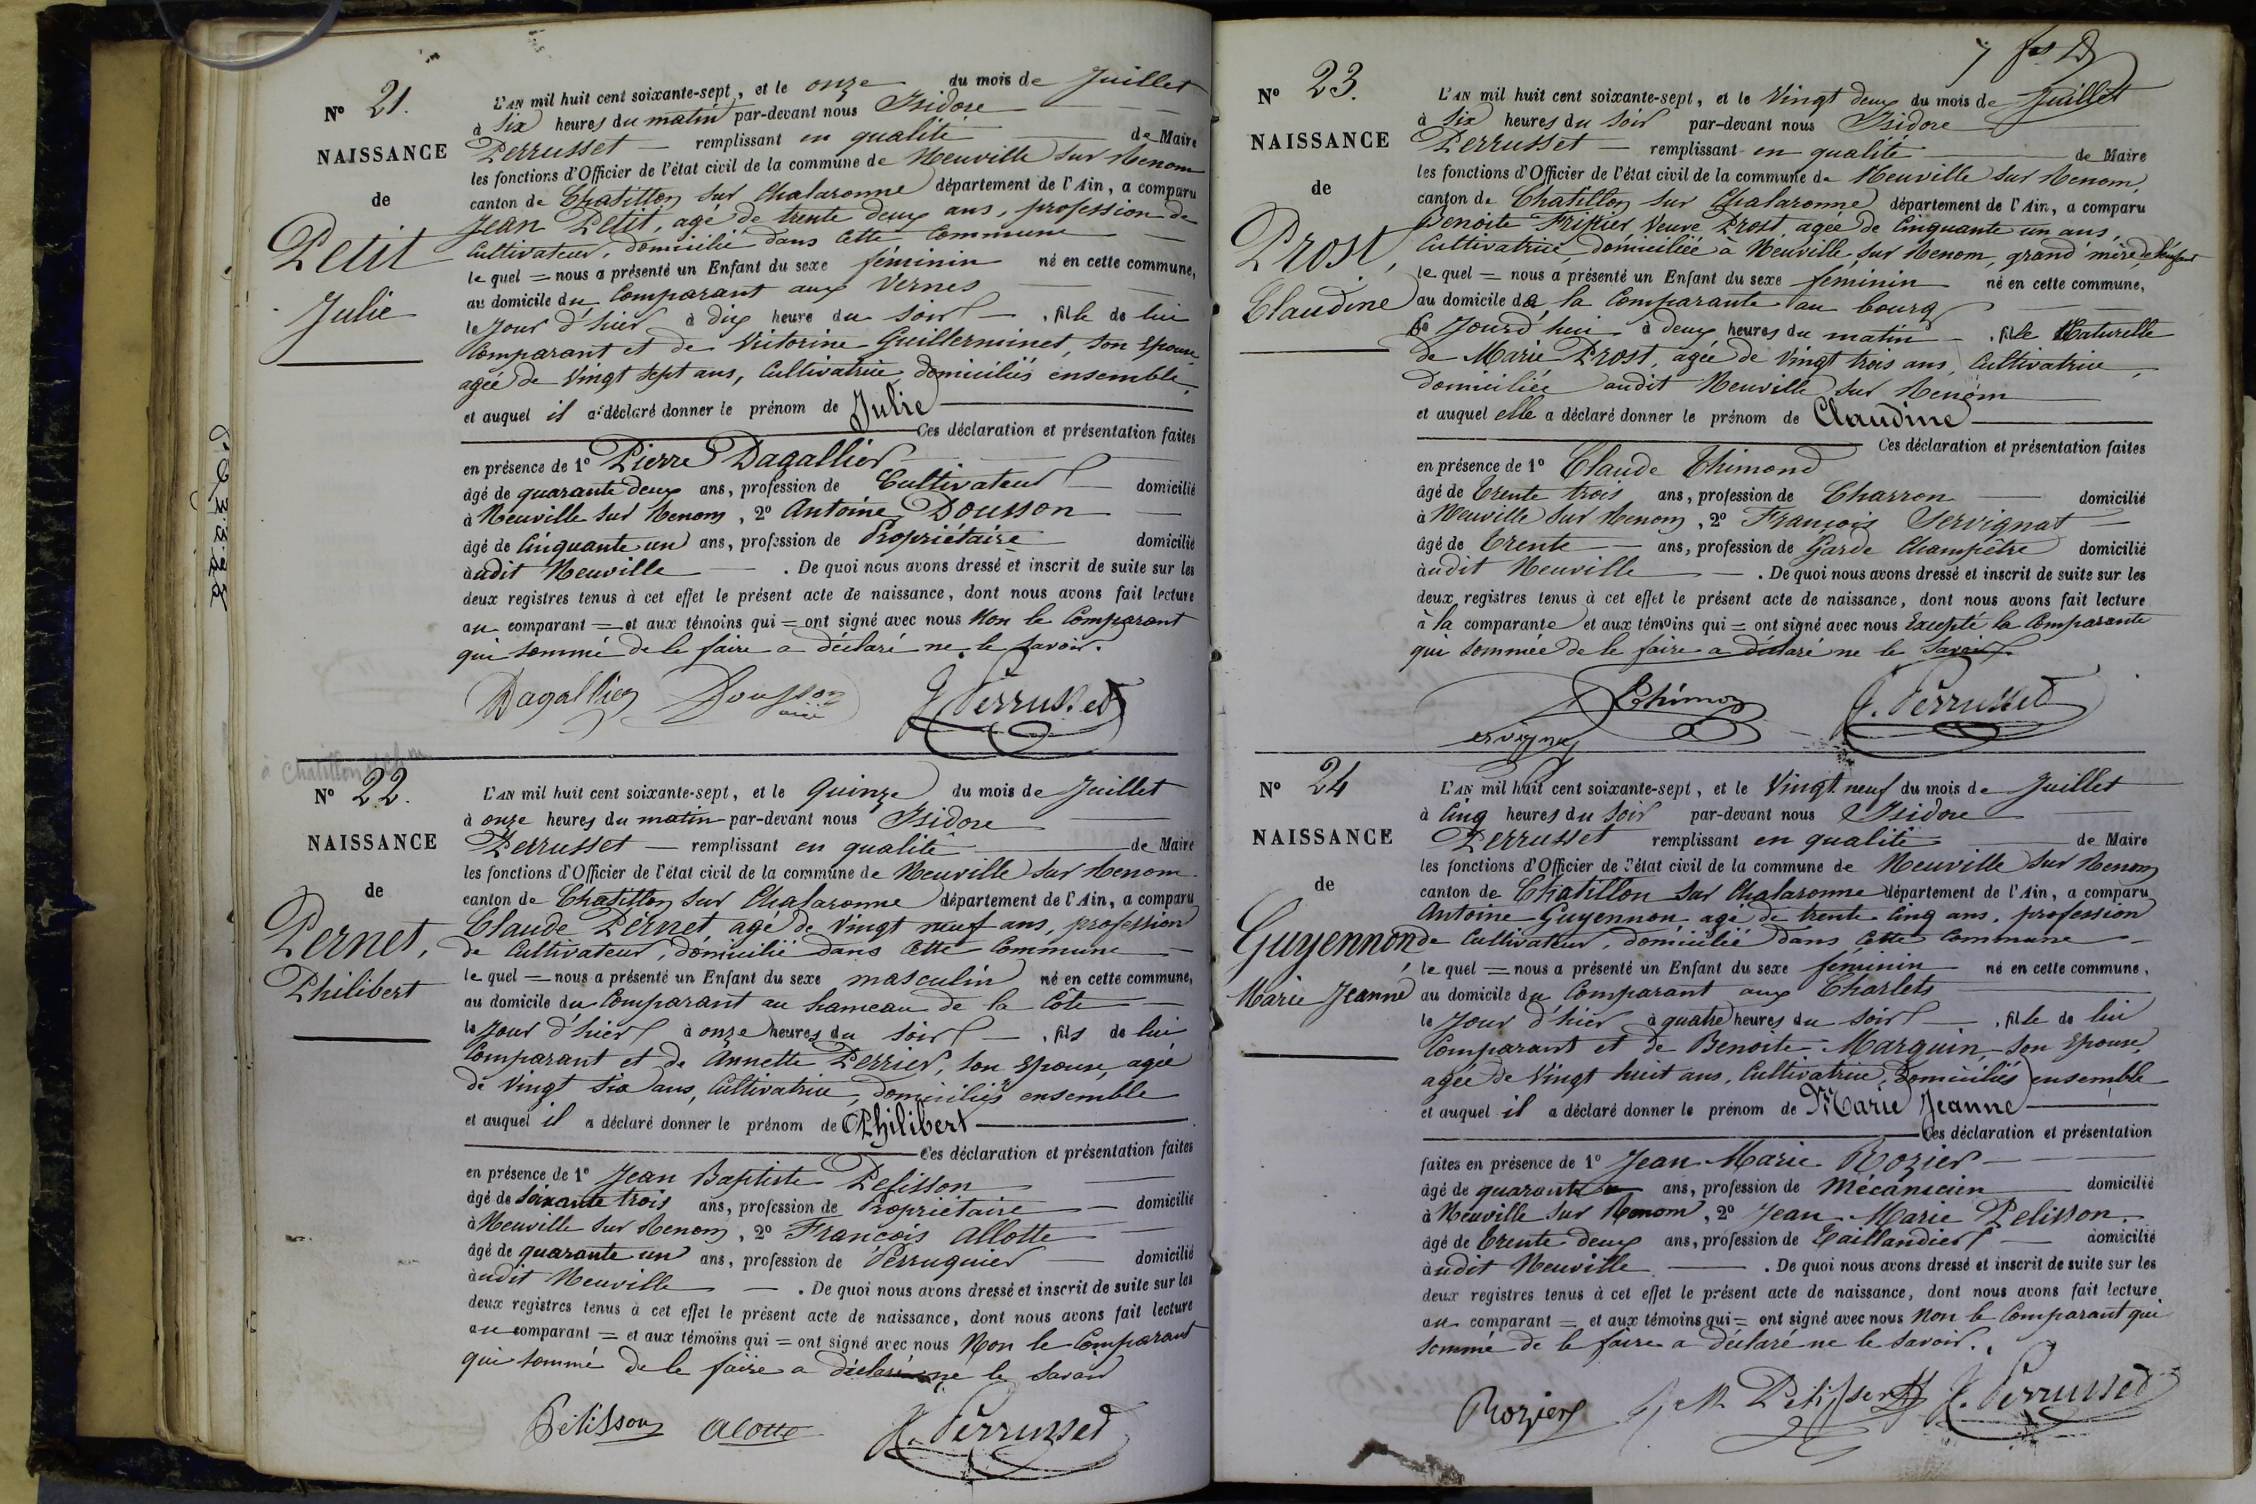 N° 21.
NAISSANCE
de
Petit
Julie
L'AN mil huit cent soixante-sept, et le onze du mois de Juillet
à six heures du matin par-devant nous Isidore
Perrusset — remplissant en qualité de Maire
les fonctions d'Officier de l'état civil de la commune de Neuville sur Renom
canton de Chatillon sur Chalaronne département de l'Ain, a comparu
Jean Petit, agé de trente deux ans, profession de
Cultivateur, domicilié dans cette Commune
le quel = nous a présenté un Enfant du sexe féminin né en cette commune,
au domicile du Comparant aux Vernes
le Jour d'hier à dix heure du soir — , fille de lui
Comparant et de Victorine Guillerminet, son Epouse
agée de Vingt sept ans, Cultivatrice, domiciliés ensemble,
et auquel il a déclaré donner le prénom de Julie
Ces déclaration et présentation faites
en présence de 1° Pierre Dagallier
âgé de quarante deux ans, profession de Cultivateur — domicilié
à Neuville sur Renom, 2° Antoine Dousson
âgé de Cinquante un ans, profession de Propriétaire domicilié
àudit Neuville — . De quoi nous avons dressé et inscrit de suite sur les
deux registres tenus à cet effet le présent acte de naissance, dont nous avons fait lecture
au comparant = et aux témoins qui = ont signé avec nous Non le Comparant
qui sommé de le faire a déclaré ne le savoir.
Dagallier Dousson J. Perrusset
à Chatillon
N° 22.
NAISSANCE
de
Pernet,
Philibert
L'AN mil huit cent soixante-sept, et le Quinze du mois de Juillet
à onze heures du matin par-devant nous Isidore
Perrusset — remplissant en qualité de Maire
les fonctions d'Officier de l'état civil de la commune de Neuville sur Renom
canton de Chatillon sur Chalaronne département de l'Ain, a comparu
Claude Pernet, agé de Vingt neuf ans, profession
de Cultivateur, domicilié dans cette Commune
le quel = nous a présenté un Enfant du sexe masculin né en cette commune,
au domicile du Comparant au hameau de la Côte
le Jour d'hier à onze heures du soir — , fils de lui
Comparant et de Annette Perrier, son Epouse, agée
de Vingt six ans, Cultivatrice, domiciliés ensemble
et auquel il a déclaré donner le prénom de Philibert
Ces déclaration et présentation faites
en présence de 1° Jean Baptiste Pelisson
âgé de soixante trois ans, profession de Propriétaire — domicilié
à Neuville sur Renom, 2° François Allotte
âgé de quarante un ans, profession de Perruquier — domicilié
àudit Neuville — . De quoi nous avons dressé et inscrit de suite sur les
deux registres tenus à cet effet le présent acte de naissance, dont nous avons fait lecture
au comparant = et aux témoins qui = ont signé avec nous Non le Comparant
qui sommé de le faire a déclaré ne le savoir
Pelisson Alotte J. Perrusset
N° 23.
NAISSANCE
de
Prost,
Claudine
L'AN mil huit cent soixante-sept, et le Vingt deux du mois de Juillet
à six heures du soir par-devant nous Isidore
Perrusset — remplissant en qualité de Maire
les fonctions d'Officier de l'état civil de la commune de Neuville sur Renom,
canton de Chatillon sur Chalaronne département de l'Ain, a comparu
Benoite Veuve Prost, agée de Cinquante un ans,
Cultivatrice, domiciliée à Neuville sur Renom, grand'mère de l'enfant
le quel = nous a présenté un Enfant du sexe féminin né en cette commune,
au domicile de la Comparante au bourg
Ce Jourd'hui à deux heures du matin — , fille Naturelle
de Marie Prost, agée de Vingt trois ans, Cultivatrice,
domiciliée audit Neuville sur Renom
et auquel elle a déclaré donner le prénom de Claudine
Ces déclaration et présentation faites
en présence de 1° Claude Thimond
âgé de Trente trois ans, profession de Charron — domicilié
à Neuville sur Renom, 2° François Servignat
âgé de Trente — ans, profession de Garde Champêtre domicilié
àudit Neuville — . De quoi nous avons dressé et inscrit de suite sur les
deux registres tenus à cet effet le présent acte de naissance, dont nous avons fait lecture
à la comparante et aux témoins qui = ont signé avec nous Excepté la Comparante
qui sommée de le faire a déclaré ne le savoir.
Thimon J. Perrusset
N° 24
NAISSANCE
de
Guyennon
Marie Jeanne
L'AN mil huit cent soixante-sept, et le Vingt neuf du mois de Juillet
à Cinq heures du soir par-devant nous Isidore
Perrusset remplissant en qualité de Maire
les fonctions d'Officier de l'état civil de la commune de Neuville sur Renom
canton de Chatillon sur Chalaronne département de l'Ain, a comparu
Antoine Guyennon agé de trente Cinq ans, profession
de Cultivateur, domicilié dans cette Commune
le quel = nous a présenté un Enfant du sexe féminin né en cette commune,
au domicile du Comparant aux Charlets
le Jour d'hier à quatre heures du soir — , fille de lui
Comparant et de Benoite Marguin, son Epouse,
agée de Vingt huit ans, Cultivatrice, domiciliés ensemble
et auquel il a déclaré donner le prénom de Marie Jeanne
Ces déclaration et présentation
faites en présence de 1° Jean Marie Rozier
âgé de quarante ans, profession de Mécanicien domicilié
à Neuville sur Renom, 2° Jean Marie Pelisson.
âgé de Trente deux ans, profession de Taillandier — domicilié
àudit Neuville — . De quoi nous avons dressé et inscrit de suite sur les
deux registres tenus à cet effet le présent acte de naissance, dont nous avons fait lecture
au comparant = et aux témoins qui = ont signé avec nous Non le Comparant qui
sommé de le faire a déclaré ne le savoir.
Rozier J M Pelisson J. Perrusset